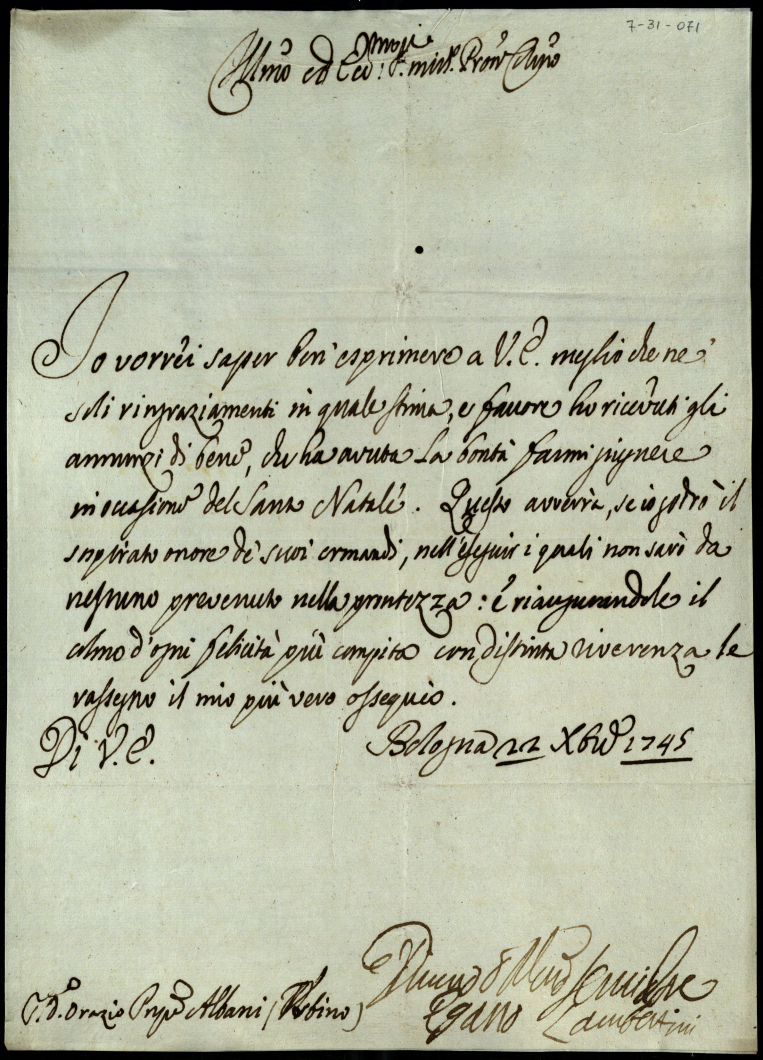 7-31-071
Illmo ed Ecc: Sig. mio Pron Clmo
Io vorrei saper ben' esprimere a V. E. meglio che ne'
soli ringraziamenti in quale stima, e favore ho ricevuti gli
annunzj di bene, che ha avuta la bontà farmi giugnere
in occasione del Santo Natale. Questo avverrà, se io godrò il
sospirato onore de' suoi comandi, nell'eseguir i quali non sarò da
nessuno prevenuto nella prontezza: e riaugurandole il
colmo d'ogni felicità più compita con distinta riverenza le
rassegno il mio più vero ossequio.
Di V. E. Bologna 22 Xbre 1745
Sr. D. Orazio Prnpe Albani (Urbino)
Egano Lambertini